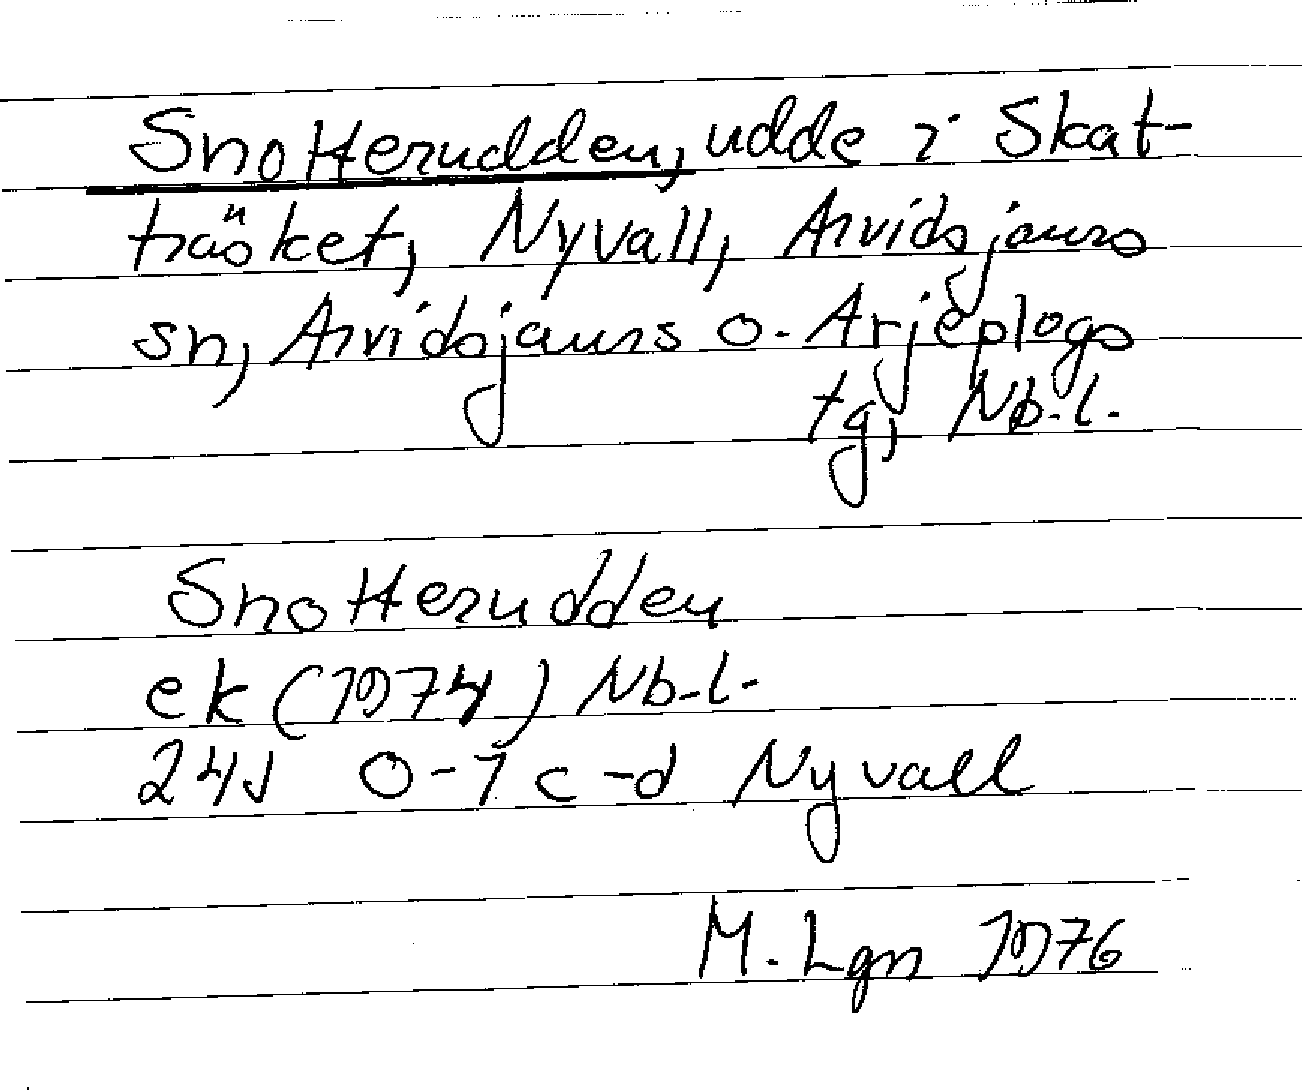 Snotterudden, udde i Skat-
träsket, Nyvall, Arvidsjaurs
sn, Arvidsjaurs o. Arjeplogs
tg, Nb.l.
Snotterudden
ek (1974) Nb.l.
24J 0-1 c-d Nyvall
M. Lgn 1976